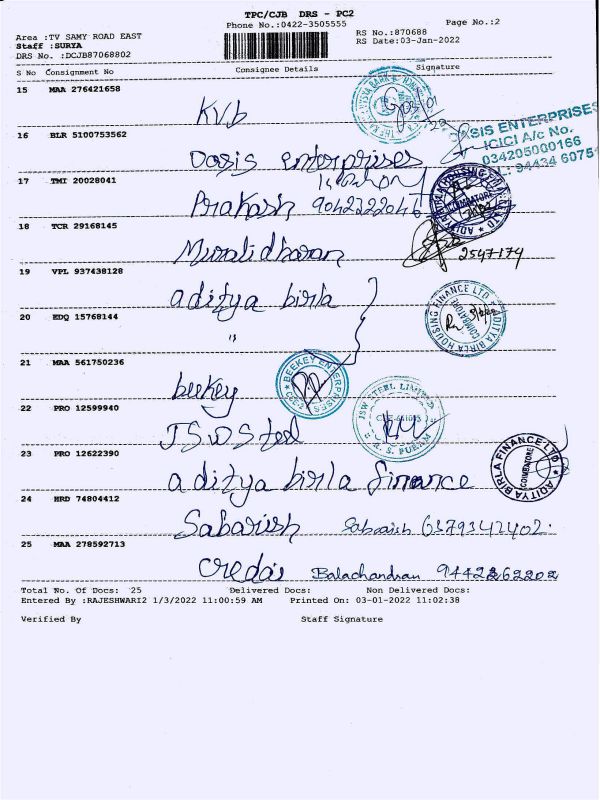 TPC/CJB DRS - PC2
Phone No.:0422-3505555
Page No.:2
Area :TV SAMY ROAD EAST
RS No.:870688
Staff :SURYA
RS Date:03-Jan-2022
DRS No. :DCJB87068802
S No Consignment No Consignee Details Signature
15 MAA 276421658
KVb
16 BLR 5100753562
Oasis enterprises
SIS ENTERPRISES
ICICI A/c No.
034205000166
94434 6075
17 TMI 20028041
Prakash 9042322046
18 TCR 29168145
Muralidharan 2547174
19 VPL 937438128
aditya birla
ADITYA BIRLA HOUSING FINANCE LTD
COIMBATORE
20 EDQ 15768144
"
21 MAA 561750236
beekey
BEEKEY ENTERPRISES
22 PRO 12599940
JSW Steel
JSW STEEL LIMITED
R. S. PURAM
23 PRO 12622390
aditya birla finance
ADITYA BIRLA FINANCE LTD
COIMBATORE
24 HRD 74804412
Sabarish Sabarish 6379342402
25 MAA 278592713
Credai Balachandran 9442262202
Total No. Of Docs: 25 Delivered Docs: Non Delivered Docs:
Entered By :RAJESHWARI2 1/3/2022 11:00:59 AM Printed On: 03-01-2022 11:02:38
Verified By Staff Signature